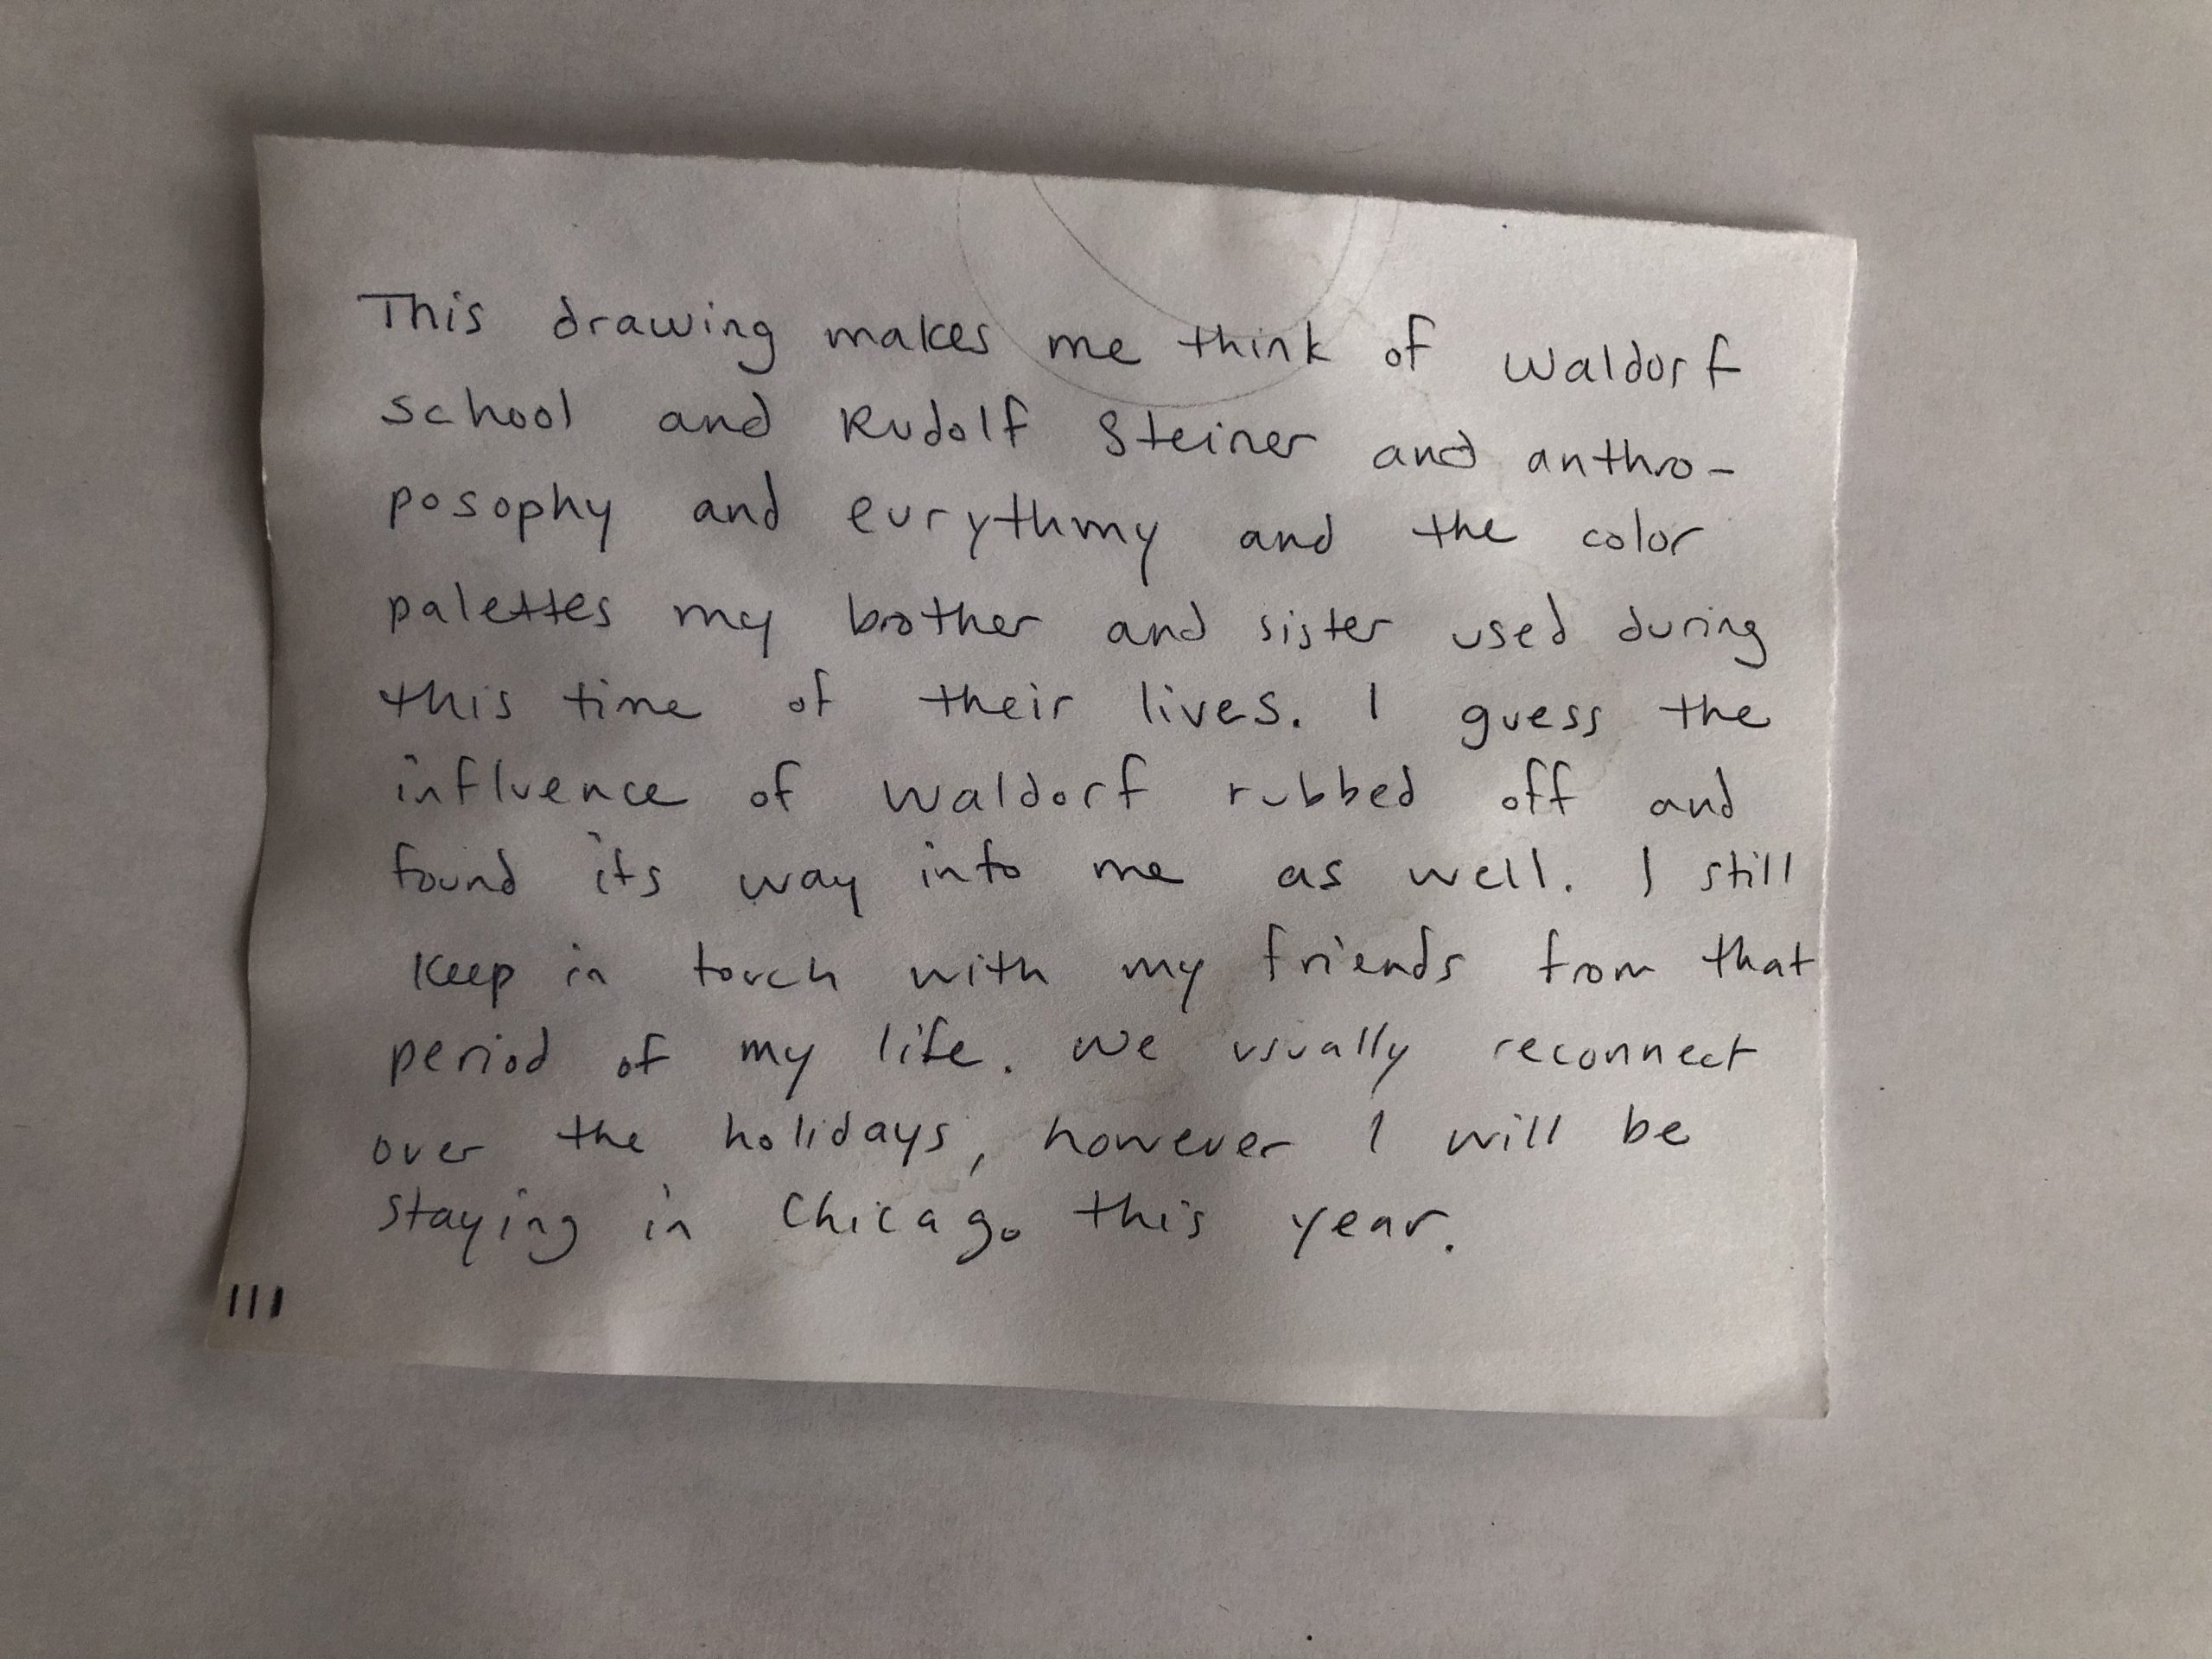 This drawing makes me think of Waldorf
school and Rudolf Steiner and anthro-
posophy and eurythmy and the color
palettes my brother and sister used during
this time of their lives. I guess the
influence of Waldorf rubbed off and
found its way into me as well. I still
keep in touch with my friends from that
period of my life. We usually reconnect
over the holidays, however I will be
staying in Chicago this year.
III